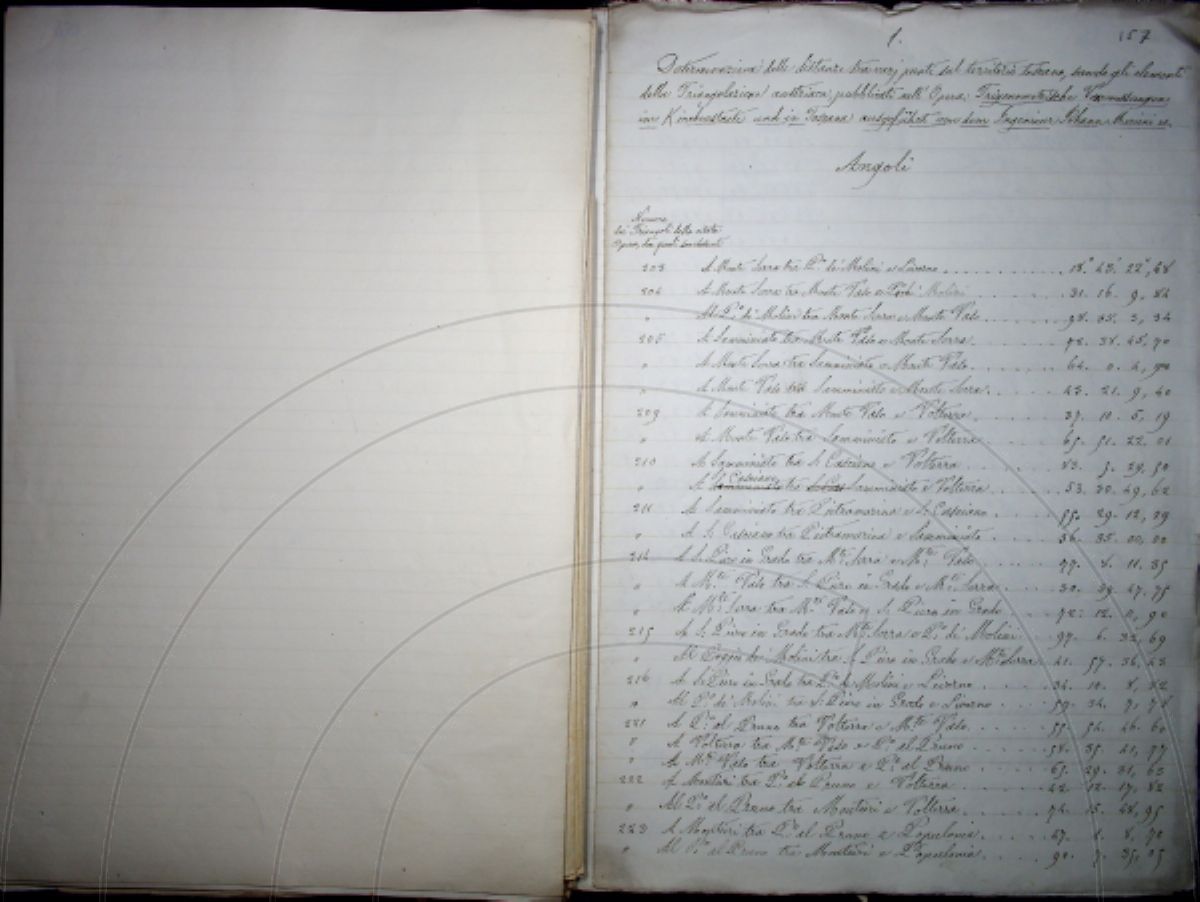 1.
157
Determinazione delle distanze tra varj punti sul territorio toscano, secondo gli elementi
della Triangolazione austriaca pubblicati nell'Opera: Trigonometrische Vermessungen
im Kirchenstaate und in Toscana ausgeführt von dem Ingenieur Johann Marieni
Angoli
Numero
dei Triangoli della citata
Opera, dai quali
203 A Monte Serra tra P.º de' Molini e Livorno 18.º 43.' 22,"68
204 A Monte Serra tra Monte Vaso e Molini 31. 16. 9, 84
" Al P.º di Molini tra Monte Serra e Monte Vaso 98. 35. 3, 34
205 A Samminiato tra Monte Vaso e Monte Serra 72. 38. 45, 70
" A Monte Serra tra Samminiato e Monte Vaso 64. 0. 4,
" A Monte Vaso tra Samminiato e Monte Serra 43. 21. 9, 40
209 A Samminiato tra Monte Vaso e Volterra 37. 10. 5, 19
" A Monte Vaso tra Samminiato e Volterra 65. 51. 22. 01
210 A Samminiato tra S. Casciano e Volterra 83. 5. 29. 50
" A S. Casciano tra Samminiato e Volterra 53. 20. 49, 62
211 A Samminiato tra Pietramarina e S. Casciano 55. 29. 12, 29
" A S. Casciano tra Pietramarina e Samminiato 36. 35. 00, 00
214 A S. Piero in Grado tra M.te Serra e M.te Vaso 77. 8. 11. 35
" A M.te Vaso tra S. Piero in Grado e M.te Serra 30. 39. 47. 75
" A M.te Serra tra M.te Vaso e S. Piero in Grado 72. 12. 0, 90
215 A S. Piero in Grado tra M.te Serra e P.º di Molini 97. 6. 32, 69
" Al Poggio di Molini tra S. Piero in Grado e M.te Serra 41. 57. 36, 23
216 A S. Piero in Grado tra P.º di Molini e Livorno 34. 10. 8,
" Al P.º di Molini tra S. Piero in Grado e Livorno 59. 34. 7, 78
221 A P.º al Pruno tra Volterra e M.te Vaso 55. 54. 46. 60
" A Volterra tra M.te Vaso e P.º al Pruno 58. 35. 41, 77
" A M.te Vaso tra Volterra e P.º al Pruno 65. 29. 31, 63
222 A Montieri tra P.º al Pruno e Volterra 42. 12. 17, 82
" Al P.º al Pruno tra Montieri e Volterra 74. 15. 48, 95
223 A Montieri tra P.º al Pruno e Populonia 47. 1. 8, 70
" Al P.º al Pruno tra Montieri e Populonia 90. 7. 35, 05